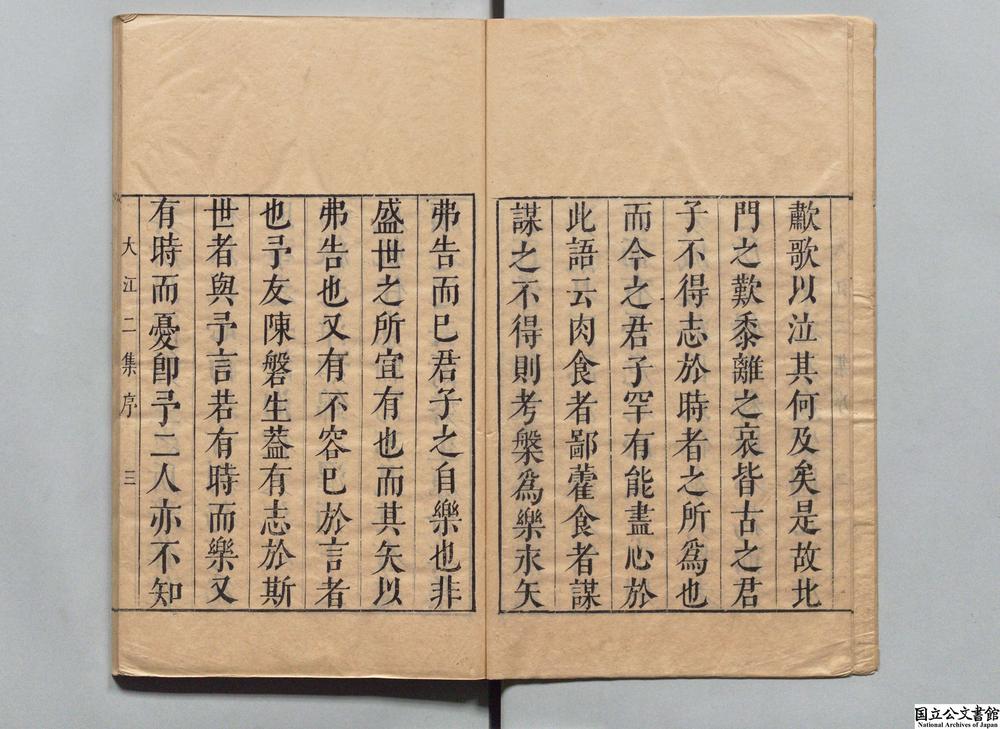 歔歌以泣其何及矣是故北
門之歎黍離之哀皆古之君
子不得志於時者之所為也
而今之君子罕有能盡心於
此語云肉食者鄙藿食者謀
謀之不得則考槃為樂永矢
弗告而已君子之自樂也非
盛世之所宜有也而其矢以
弗告也又有不容已於言者
也予友陳磐生葢有志於斯
世者與予言若有時而樂又
有時而憂卽予二人亦不知
大江二集序 三
国立公文書館
National Archives of Japan